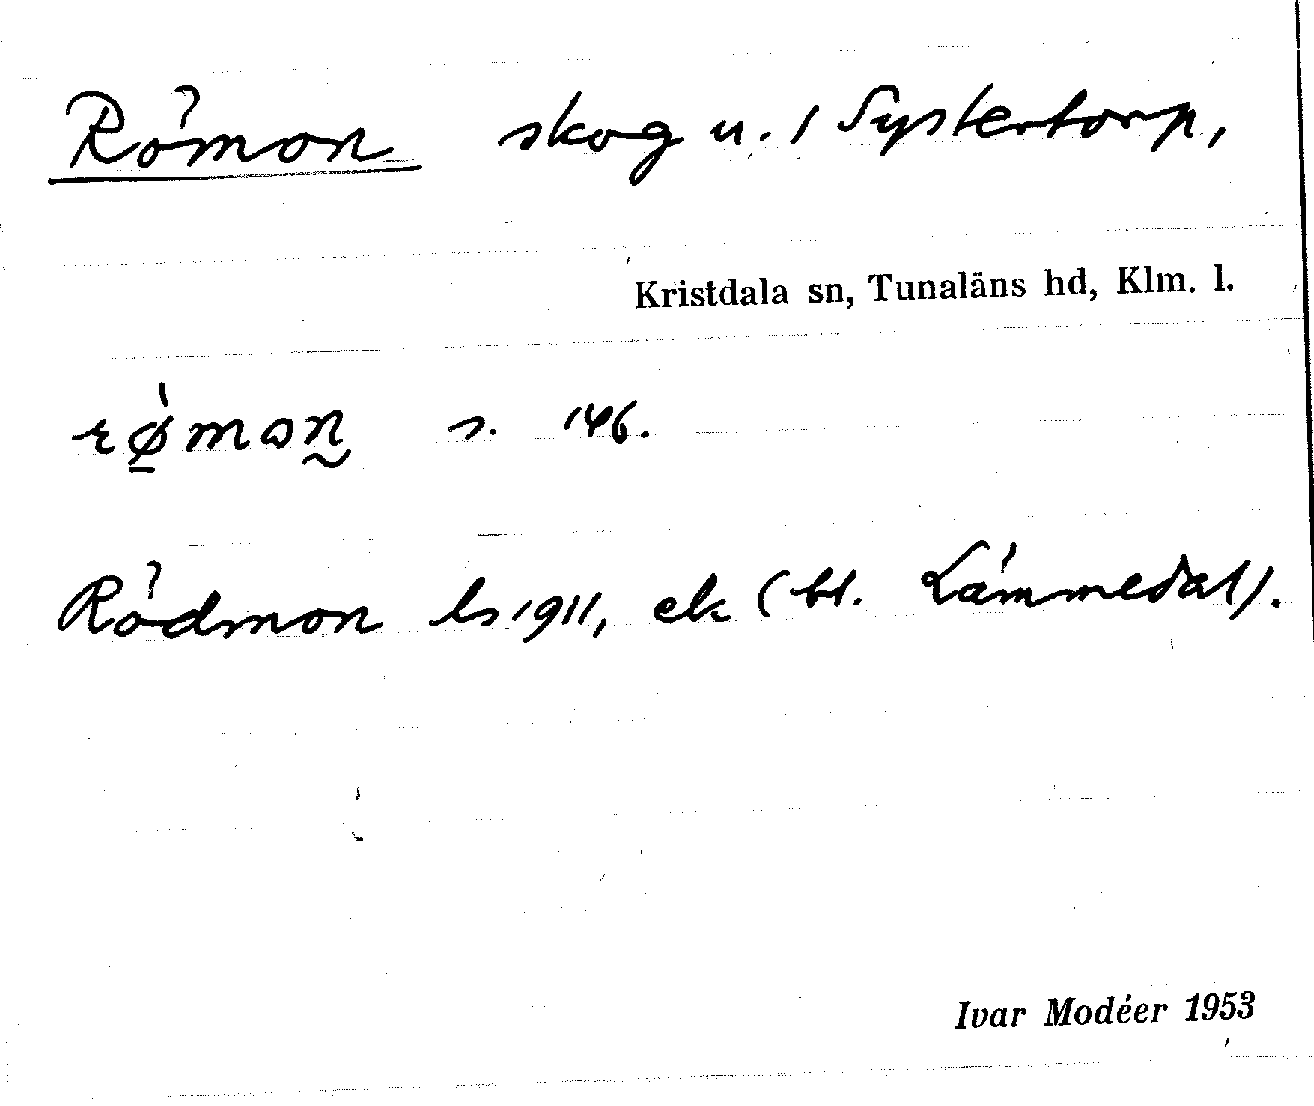 Römon skog u. 1 Systertorp,
Kristdala sn, Tunaläns hd, Klm. l.
rø̀mon s. 146.
Rödmon ls 1911, ek (bl. Lämmedal).
Ivar Modéer 1953